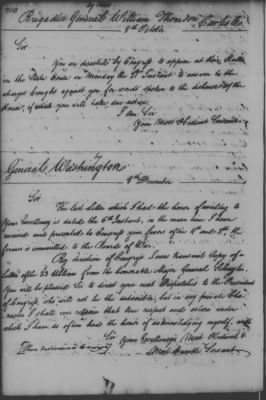 210
by
Brigadier General William Thomson Carlisle
8th October
Sir
You are directed by Congress to appear at their Bar
in the State House on Monday the 21st Instant to answer to the
charges brought against you for words spoken to the dishonor of the
House, of which you will take due notice
I am Sir
Your Most Obedient Servant
by
General Washington
8th December
Sir
The last Letter which I had the honor of writing to
Your Excellency is dated the 6th Instant, in the mean time I have
received and presented to Congress your favors of the 4th and 5th the
former is committed to the Board of War.
By direction of Congress I now transmit Copy of a
Letter of the 23 Ultimo from the honorable Major General Schuyler.
You will be pleased Sir to direct your next Dispatches to the President
of Congress, who will not be the subscriber, but in my private
I shall ever retain that true respect and esteem under
which I have so often had the honor of acknowledging myself, with
Sir Your Excellency's Most Obedient &
Most Humble Servant